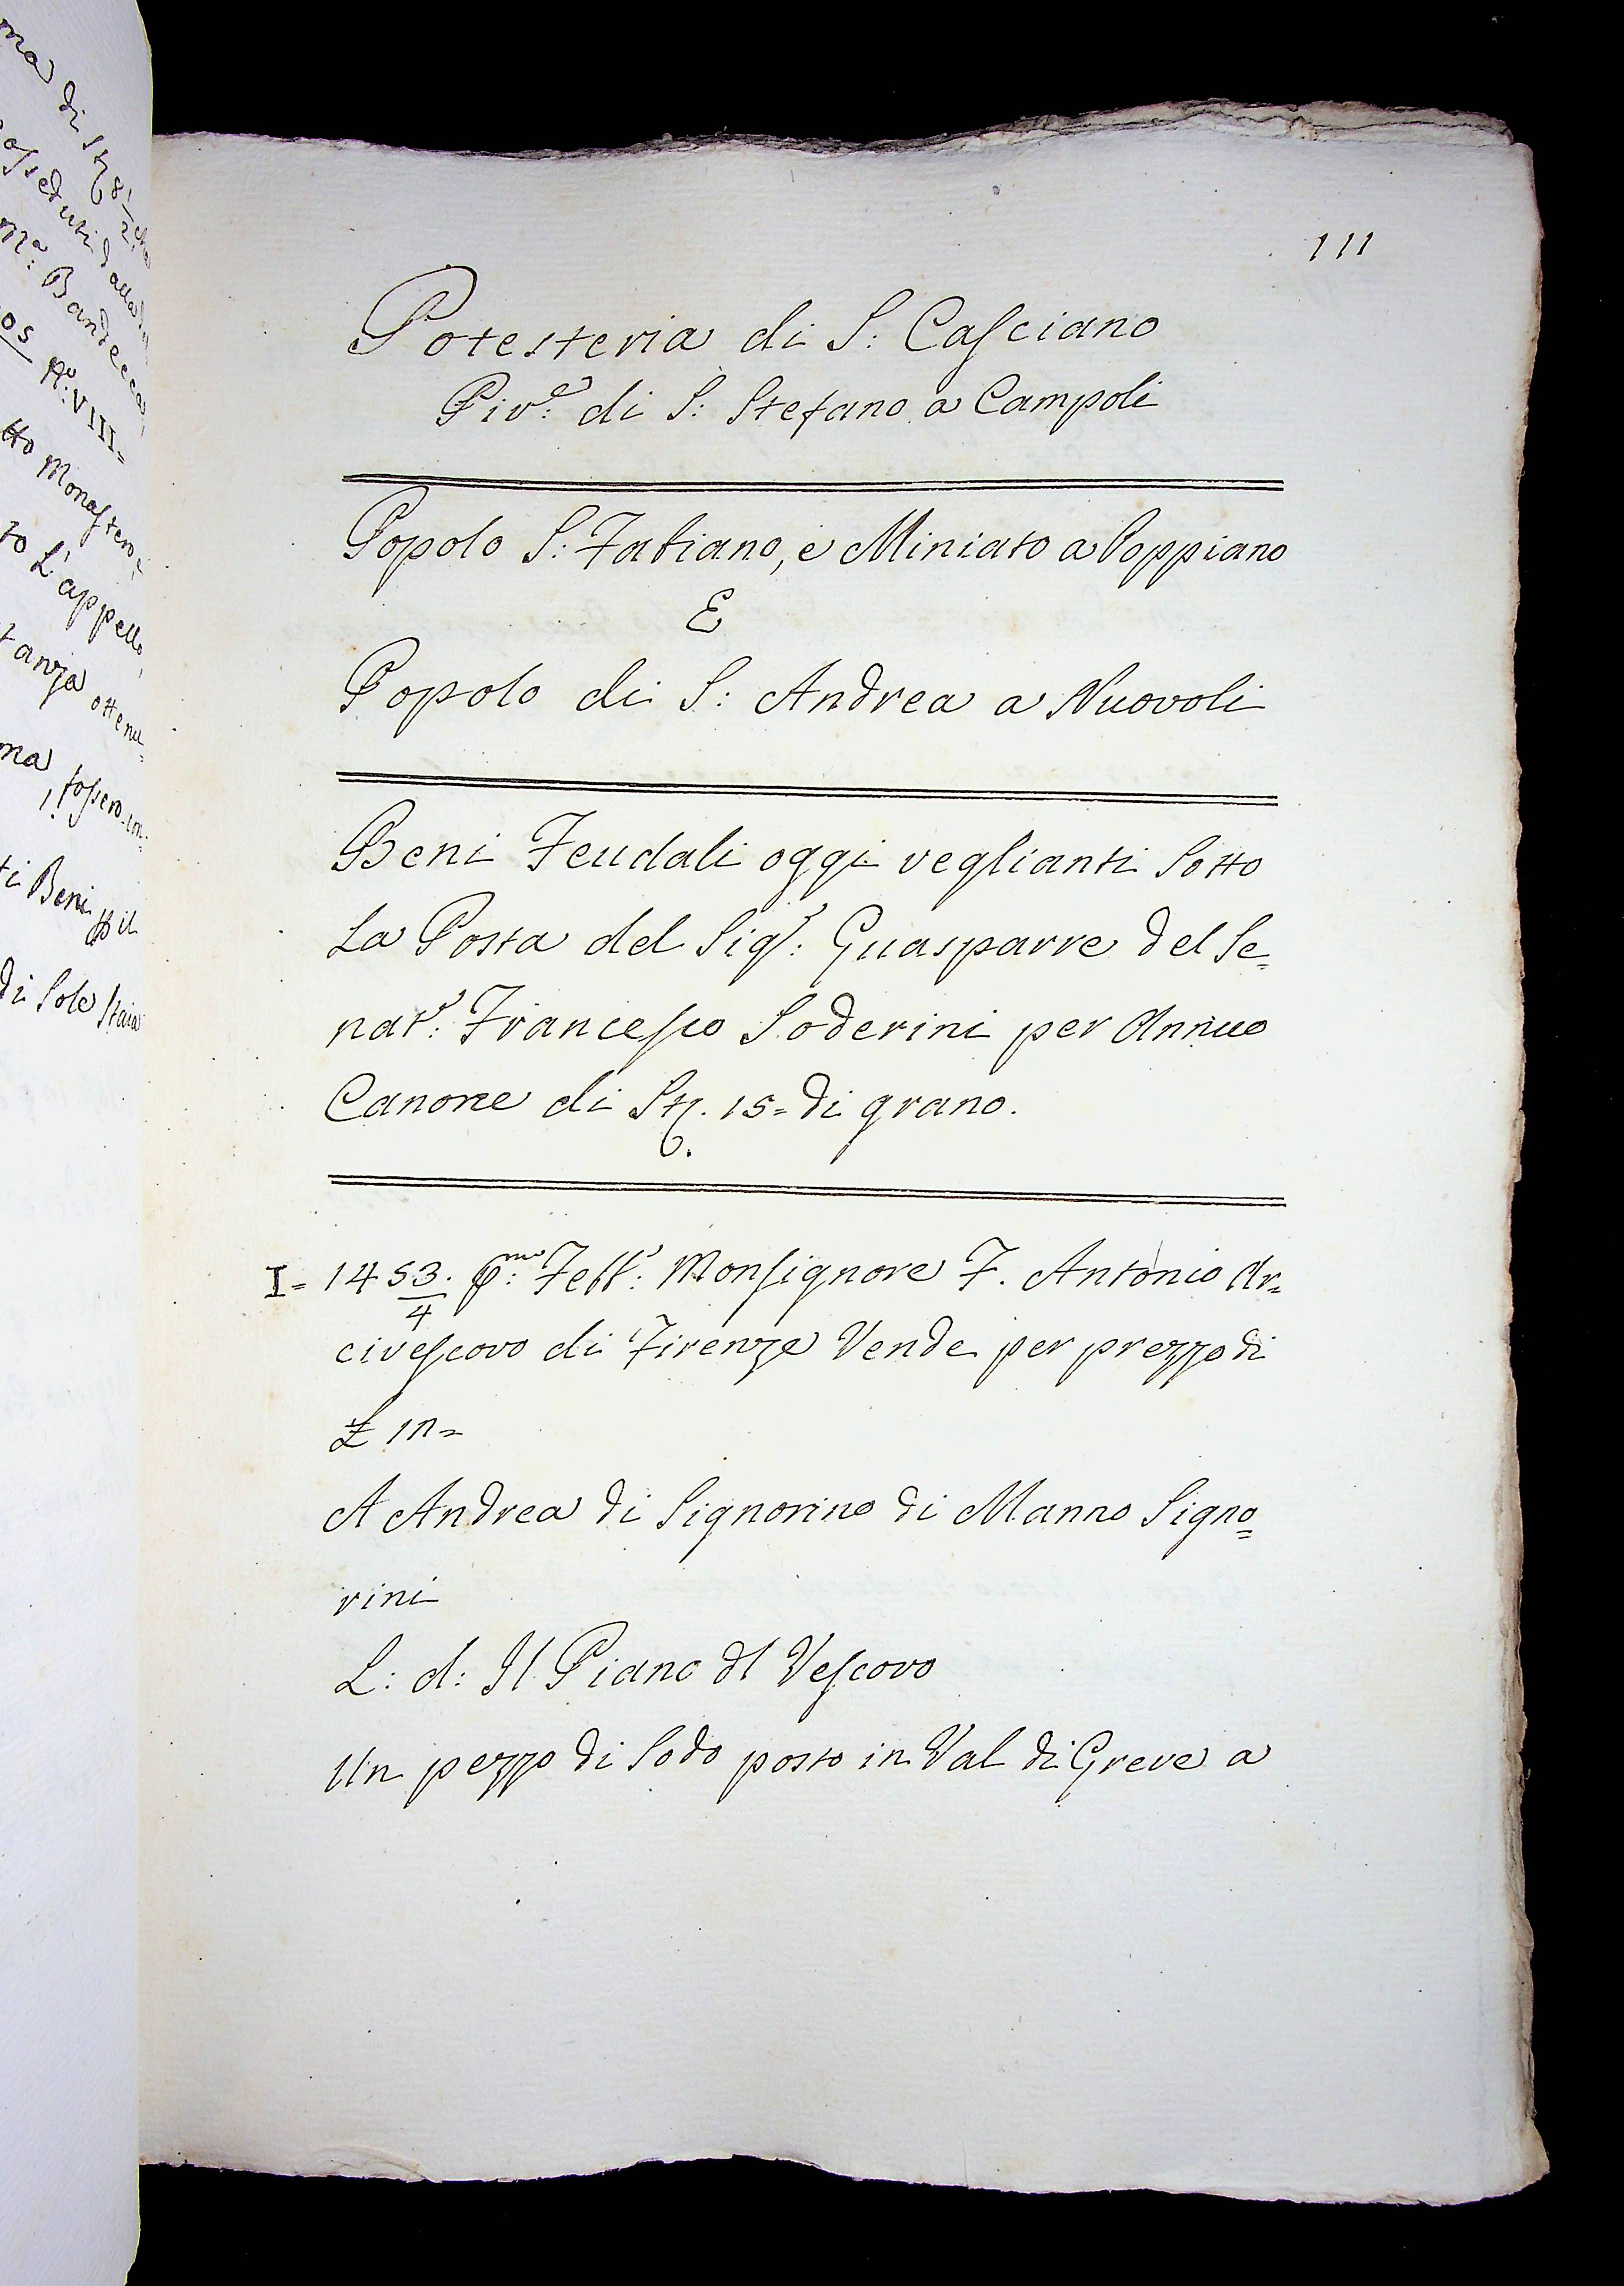 ma di St. 8 1/2
osseduti dalla
m.a: Bandecca
os N.o: VIII=
tto Monastero,
to L'appello,
tanza ottenu=
ma, fossero im=
ti Beni p il
di Sole Staia
111
Potesteria di S: Casciano
Piv.e: di S: Stefano a Campoli
Popolo S: Fabiano, e Miniato a Poppiano
E
Popolo di S: Andrea a Nuovoli
Beni Feudali oggi veglianti Sotto
La Posta del Sig.r: Guasparre del Se=
nat.r: Francesco Soderini per Annuo
Canone di St. 15= di grano.
I= 1453/4. p.mo: Febb.o: Monsignore F. Antonio Ar=
civescovo di Firenze Vende per prezzo di
£ 111=
A Andrea di Signorino di Manno Signo=
rini
L: d: Il Piano dl Vescovo
Un pezzo di Sodo posto in Val di Greve a